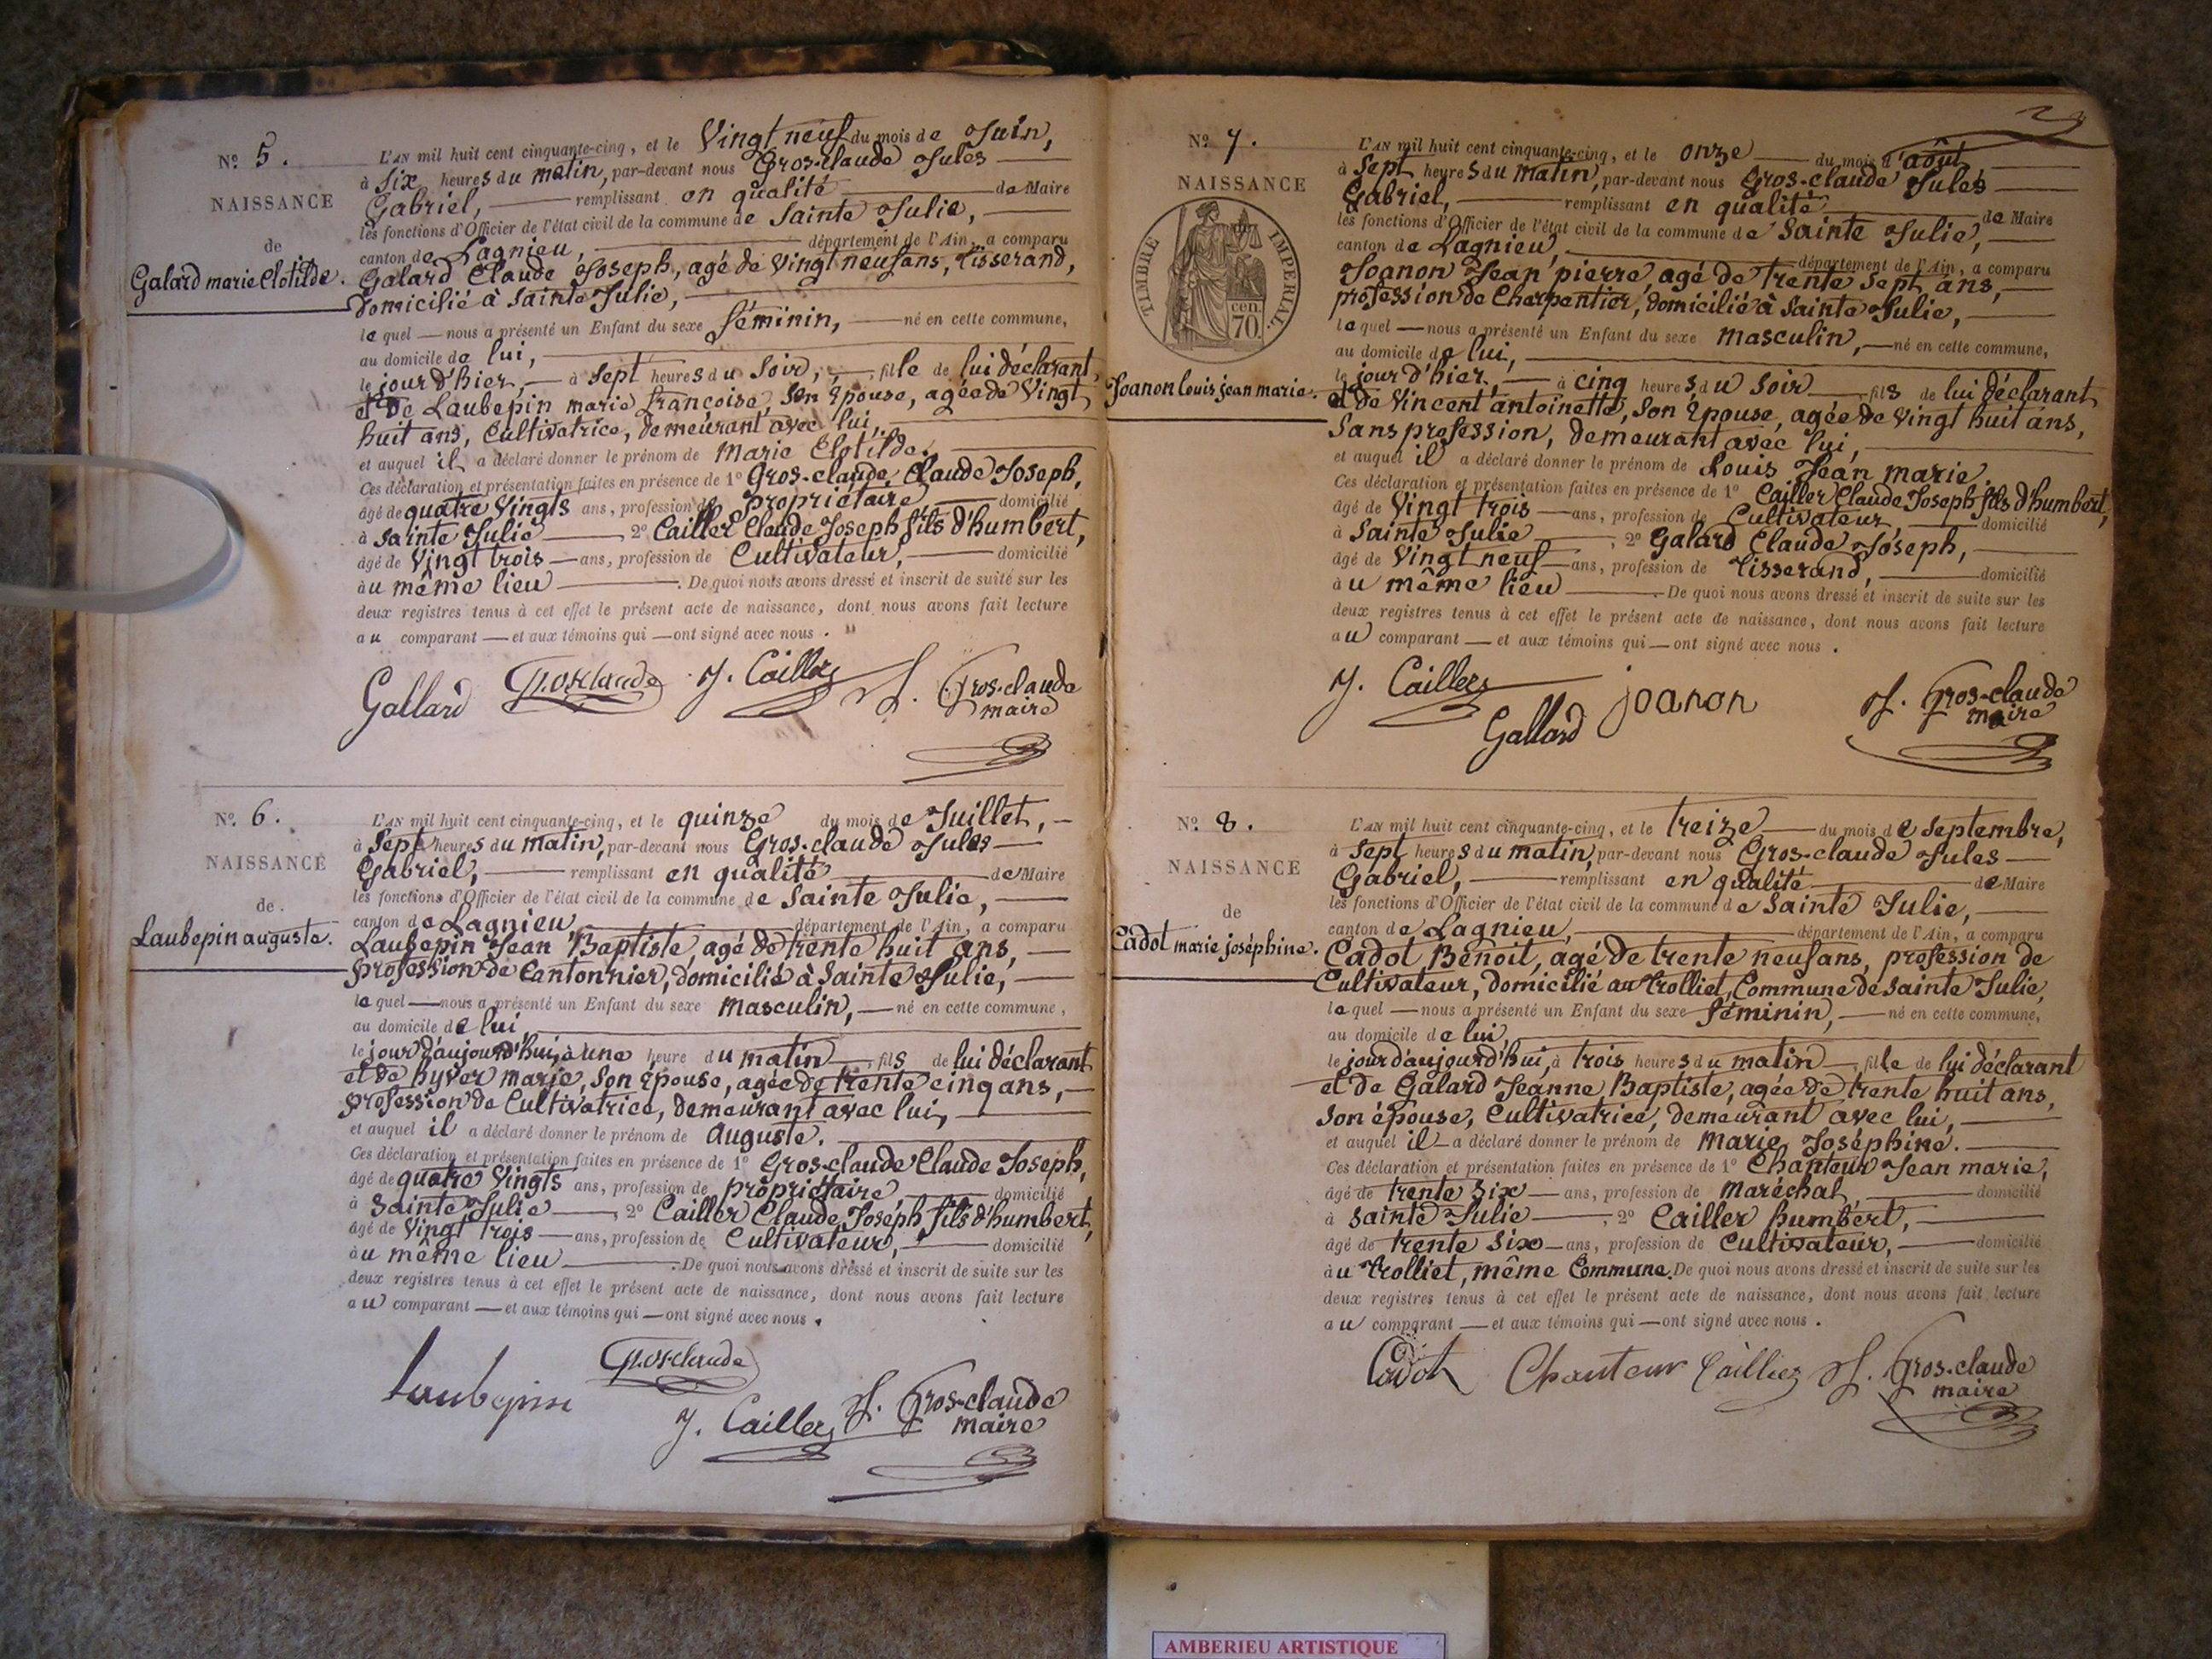 Nº 5.
NAISSANCE
de
Galard marie Clotilde.
L'AN mil huit cent cinquante-cinq, et le Vingt neuf du mois de Juin,
à Six heures du matin, par-devant nous Gros-claude Jules
Gabriel, remplissant en qualité de Maire
les fonctions d'Officier de l'état civil de la commune de Sainte Julie,
canton de Lagnieu, département de l'Ain, a comparu
Galard Claude Joseph, agé de Vingt neuf ans, tisserand,
domicilié à Sainte Julie,
lequel nous a présenté un Enfant du sexe féminin, né en cette commune,
au domicile de lui,
le jour d'hier, à Sept heures du Soir, fille de lui déclarant
et de Laubepin marie françoise, Son Epouse, agée de Vingt
huit ans, Cultivatrice, demeurant avec lui,
et auquel il a déclaré donner le prénom de Marie Clotilde.
Ces déclaration et présentation faites en présence de 1º Gros-claude, Claude Joseph,
âgé de quatre Vingts ans, profession de propriétaire domicilié
à Sainte Julie 2º Cailler Claude Joseph fils d'humbert,
âgé de Vingt trois ans, profession de Cultivateur, domicilié
au même lieu. De quoi nous avons dressé et inscrit de suite sur les
deux registres tenus à cet effet le présent acte de naissance, dont nous avons fait lecture
au comparant et aux témoins qui ont signé avec nous.
Gallard Grosclaude J. Cailler J. Gros-claude
maire
Nº 6.
NAISSANCE
de
Laubepin auguste.
L'AN mil huit cent cinquante-cinq, et le quinze du mois de Juillet,
à Sept heures du matin, par-devant nous Gros-claude Jules
Gabriel, remplissant en qualité de Maire
les fonctions d'Officier de l'état civil de la commune de Sainte Julie,
canton de Lagnieu département de l'Ain, a comparu
Laubepin Jean Baptiste, agé de trente huit ans,
profession de Cantonnier, domicilié à Sainte Julie,
lequel nous a présenté un Enfant du sexe masculin, né en cette commune,
au domicile de lui,
le jour d'aujourd'hui, à une heure du matin fils de lui déclarant
et de hyver marie, Son Epouse, agée de trente cinq ans,
profession de Cultivatrice, demeurant avec lui,
et auquel il a déclaré donner le prénom de auguste.
Ces déclaration et présentation faites en présence de 1º Gros-claude Claude Joseph,
âgé de quatre Vingts ans, profession de propriétaire domicilié
à Sainte Julie, 2º Cailler Claude Joseph fils d'humbert,
âgé de Vingt trois ans, profession de Cultivateur, domicilié
au même lieu. De quoi nous avons dressé et inscrit de suite sur les
deux registres tenus à cet effet le présent acte de naissance, dont nous avons fait lecture
au comparant et aux témoins qui ont signé avec nous.
Laubepin Grosclaude
J. Cailler J. Gros-claude
maire
Nº 7.
NAISSANCE
TIMBRE IMPERIAL.
70 cen.
Joanon louis jean marie.
L'AN mil huit cent cinquante-cinq, et le onze du mois d'août
à Sept heures du matin, par-devant nous Gros-claude Jules
Gabriel, remplissant en qualité de Maire
les fonctions d'Officier de l'état civil de la commune de Sainte Julie,
canton de Lagnieu, département de l'Ain, a comparu
Joanon Jean pierre, agé de trente Sept ans,
profession de Charpentier, domicilié à Sainte Julie,
lequel nous a présenté un Enfant du sexe masculin, né en cette commune,
au domicile de lui,
le jour d'hier, à cinq heures du Soir fils de lui déclarant
et de Vincent antoinette, Son Epouse, agée de Vingt huit ans,
Sans profession, demeurant avec lui,
et auquel il a déclaré donner le prénom de Louis Jean marie.
Ces déclaration et présentation faites en présence de 1º Cailler Claude Joseph fils d'humbert,
âgé de Vingt trois ans, profession de Cultivateur, domicilié
à Sainte Julie, 2º Galard Claude Joseph,
âgé de Vingt neuf ans, profession de tisserand, domicilié
au même lieu. De quoi nous avons dressé et inscrit de suite sur les
deux registres tenus à cet effet le présent acte de naissance, dont nous avons fait lecture
au comparant et aux témoins qui ont signé avec nous.
J. Cailler Gallard joanon J. Gros-claude
maire
Nº 8.
NAISSANCE
de
Cadot marie joséphine.
L'AN mil huit cent cinquante-cinq, et le treize du mois de Septembre,
à Sept heures du matin, par-devant nous Gros-claude Jules
Gabriel, remplissant en qualité de Maire
les fonctions d'Officier de l'état civil de la commune de Sainte Julie,
canton de Lagnieu, département de l'Ain, a comparu
Cadot Benoit, agé de trente neuf ans, profession de
Cultivateur, domicilié au trolliet, Commune de Sainte Julie,
lequel nous a présenté un Enfant du sexe féminin, né en cette commune,
au domicile de lui,
le jour d'aujourd'hui, à trois heures du matin fille de lui déclarant
et de Galard Jeanne Baptiste, agée de trente huit ans,
Son épouse, Cultivatrice, demeurant avec lui,
et auquel il a déclaré donner le prénom de Marie Joséphine.
Ces déclaration et présentation faites en présence de 1º Chanteur Jean marie,
âgé de trente Six ans, profession de Maréchal, domicilié
à Sainte Julie, 2º Cailler humbert,
âgé de trente Six ans, profession de Cultivateur, domicilié
au trolliet, même Commune. De quoi nous avons dressé et inscrit de suite sur les
deux registres tenus à cet effet le présent acte de naissance, dont nous avons fait lecture
au comparant et aux témoins qui ont signé avec nous.
Cadot Chanteur Caillier J. Gros-claude
maire
AMBERIEU ARTISTIQUE